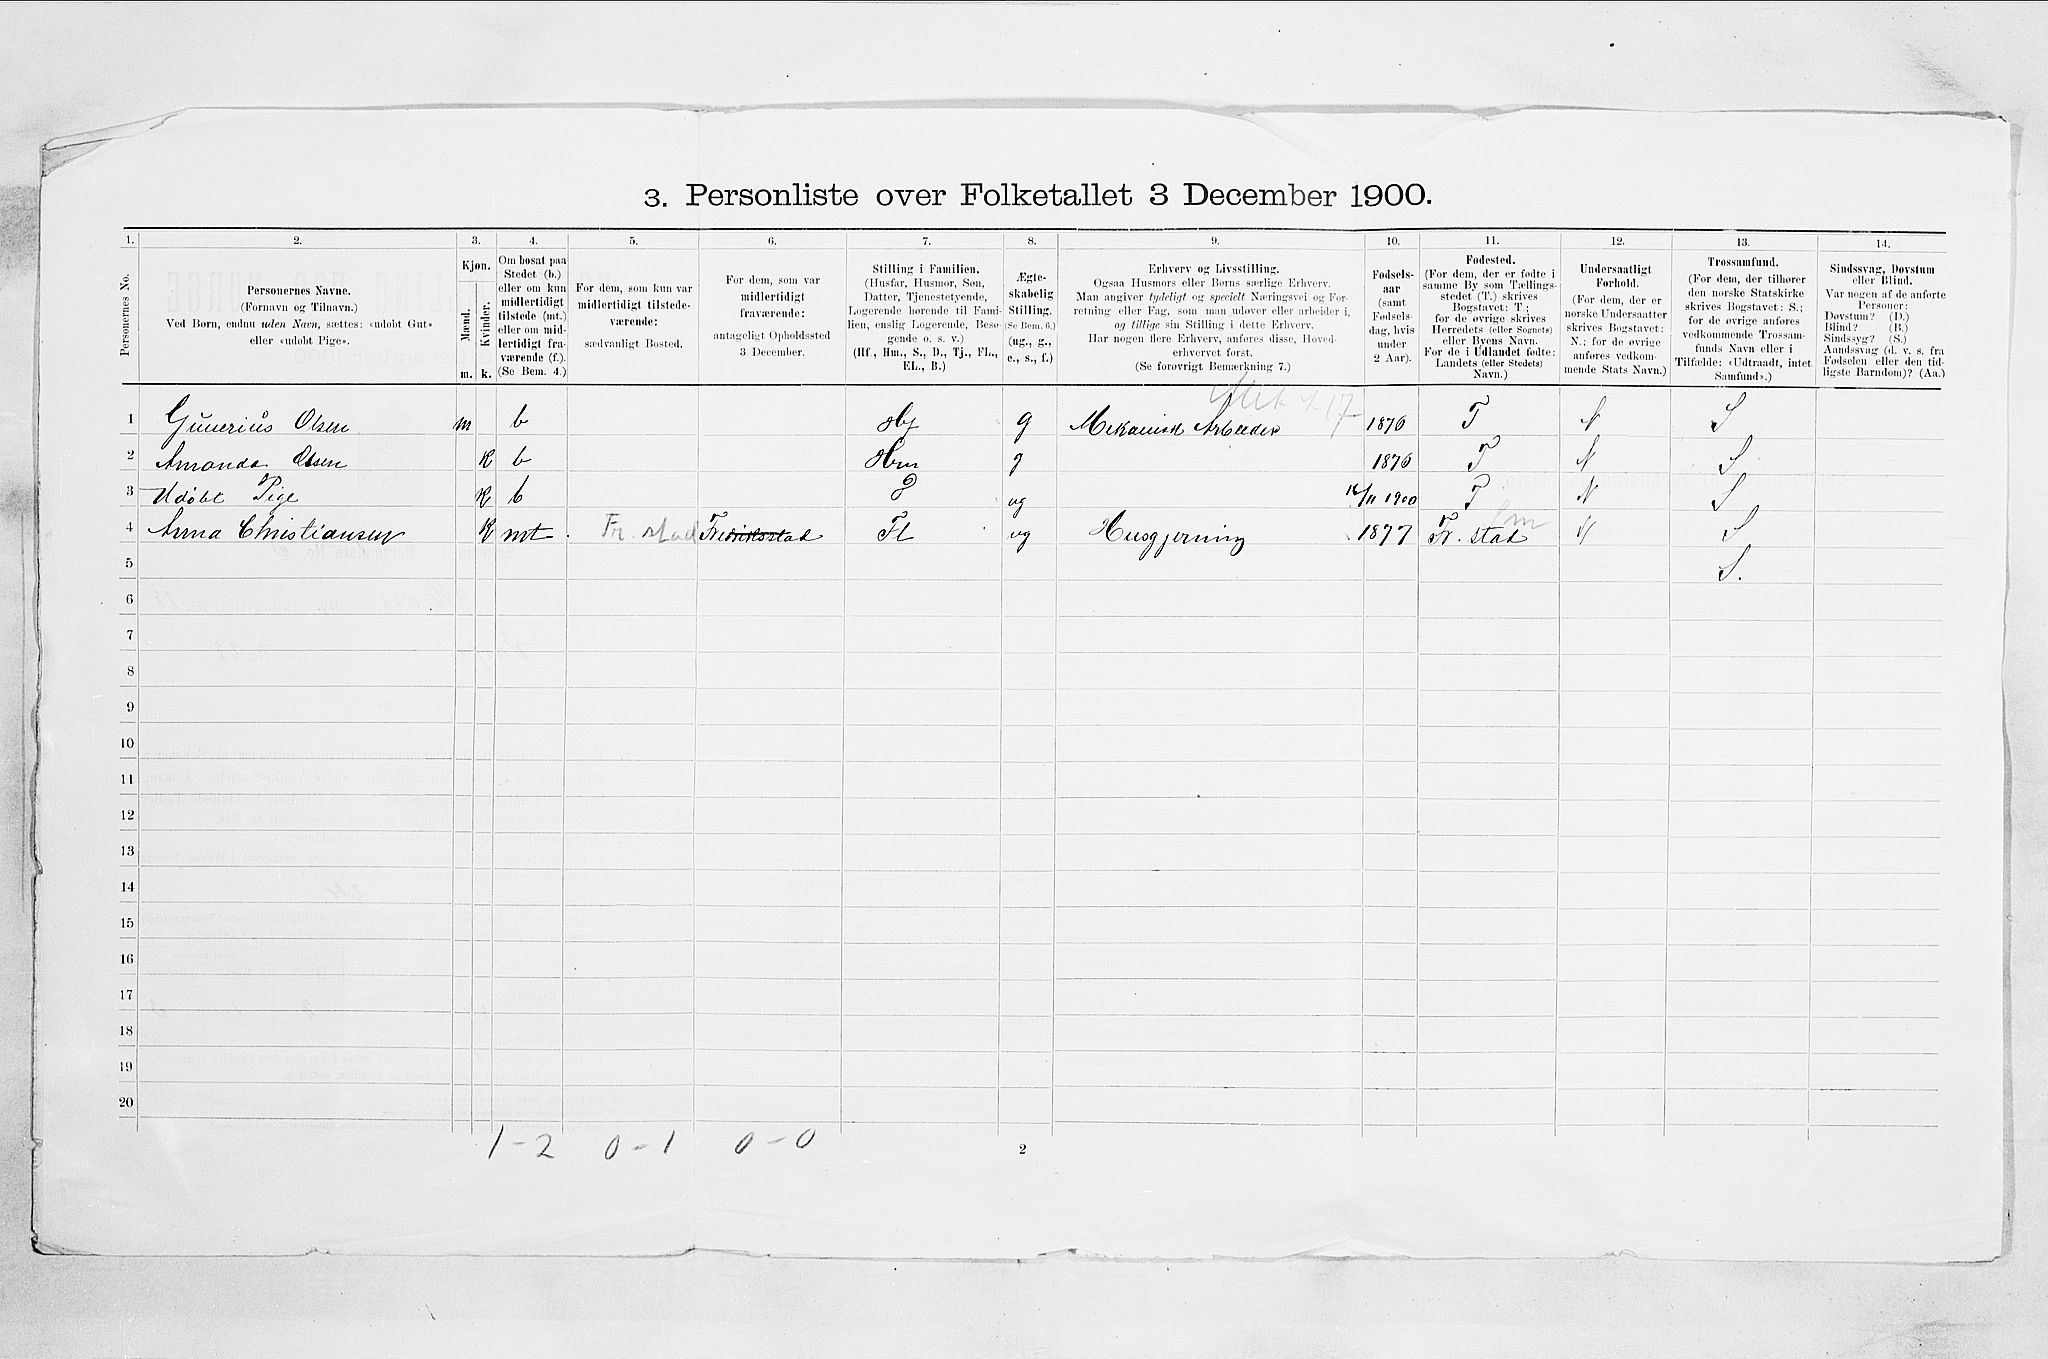 3. Personliste over Folketallet 3 December 1900.
1. 2. 3. 4. 5. 6. 7. 8. 9. 10. 11. 12. 13. 14.
Personernes No.
Personernes Navne.
(Fornavn og Tilnavn.)
Ved Børn, endnu uden Navn, sættes: «udøbt Gut»
eller «udøbt Pige».
Kjøn.
Mænd.
Kvinder.
m. k.
Om bosat paa
Stedet (b.)
eller om kun
midlertidigt
tilstede (mt.)
eller om mid-
lertidigt fra-
værende (f.).
(Se Bem. 4.)
For dem, som kun var
midlertidigt tilstede-
værende:
sædvanligt Bosted.
For dem, som var
midlertidigt
fraværende:
antageligt Opholdssted
3 December.
Stilling i Familien.
(Husfar, Husmor, Søn,
Datter, Tjenestetyende,
Logerende hørende til Fami-
lien, enslig Logerende, Besø-
gende o. s. v.)
(Hf., Hm., S., D., Tj., FL.,
EL., B.)
Ægte-
skabelig
Stilling.
(Se Bem. 6.)
(ug., g.,
e., s., f.)
Erhverv og Livsstilling.
Ogsaa Husmors eller Børns særlige Erhverv.
Man angiver tydeligt og specielt Næringsvei og For-
retning eller Fag, som man udøver eller arbeider i,
og tillige sin Stilling i dette Erhverv.
Har nogen flere Erhverv, anføres disse, Hoved-
erhvervet først.
(Se forøvrigt Bemærkning 7.)
Fødsels-
aar
(samt
Fødsels-
dag, hvis
under
2 Aar).
Fødested.
(For dem, der er fødte i
samme By som Tællings-
stedet (T.) skrives
Bogstavet: T.;
for de øvrige skrives
Herredets (eller Sognets)
eller Byens Navn.
For de i Udlandet fødte:
Landets (eller Stedets)
Navn.)
Undersaatligt
Forhold.
(For dem, der er
norske Undersaatter
skrives Bogstavet:
N.; for de øvrige
anføres vedkom-
mende Stats Navn.)
Trossamfund.
(For dem, der tilhører
den norske Statskirke
skrives Bogstavet: S.;
for de øvrige anføres
vedkommende Trossam-
funds Navn eller i
Tilfælde: «Udtraadt, intet
Samfund».)
Sindssvag, Døvstum
eller Blind.
Var nogen af de anførte
Personer:
Døvstum? (D.)
Blind? (B.)
Sindssyg? (S.)
Aandssvag (d. v. s. fra
Fødselen eller den tid-
ligste Barndom)? (Aa.)
1 Gunerius Olsen m b Hf g Mekanisk Arbeider 1876 T N S
2 Amanda Olsen K b Hm g 1876 T N S
3 Udøbt Pige K b D ug 16/11 1900 T N S
4 Anna Christiansen K mt Fr. stad Fredriksstad Fl ug Husgjerning 1877 Fr. stad N S
5 S.
6
7
8
9
10
11
12
13
14
15
16
17
18
19
20
1-2 0-1 0-0
2